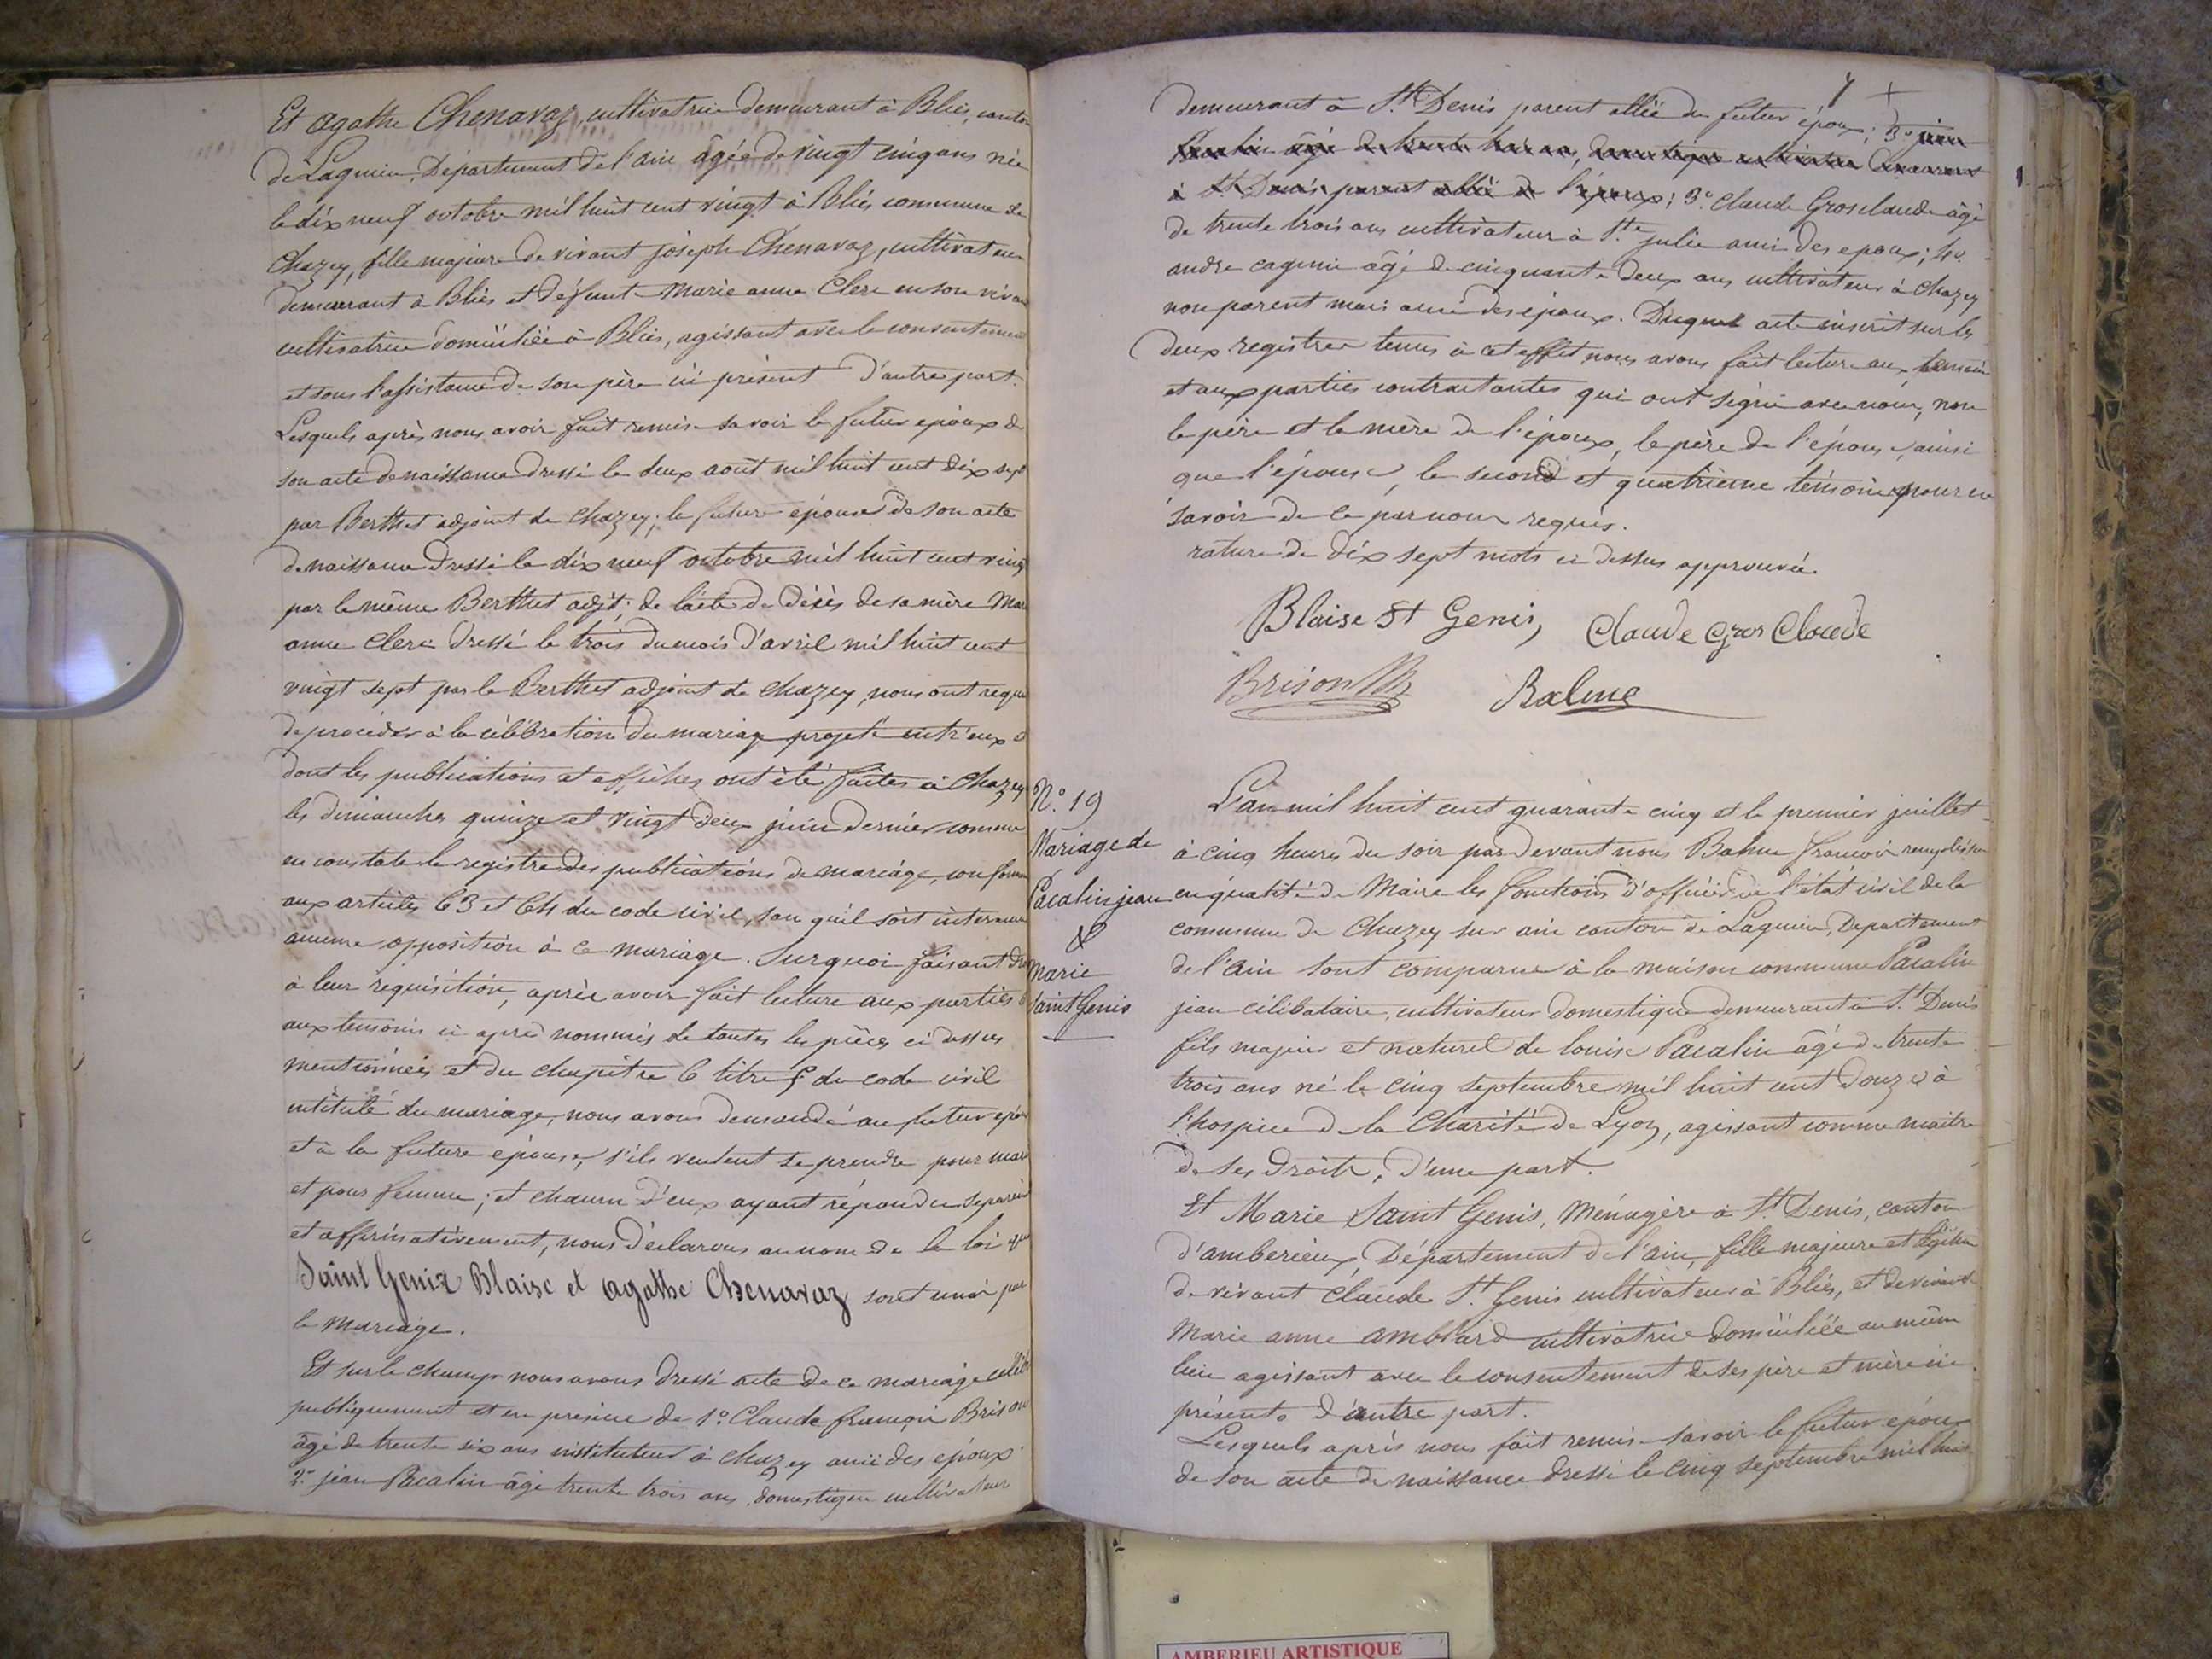 Et agathe Chenavaz, cultivatrice demeurant à Bliès, canton
de Lagnieu, Département de l'ain âgée de vingt cinq ans née
le dix neuf octobre mil huit cent vingt à Bliès commune de
Chazey, fille majeure de vivant joseph Chenavaz, cultivateur
demeurant à Bliès et défunte Marie anne Clerc en son vivant
cultivatrice domiciliée à Bliès, agissant avec le consentement
et sous l'assistance de son père ici présent D'autre part.
Lesquels après nous avoir fait remise savoir le futur epoux de
son acte de naissance dressé le deux août mil huit cent dix sept
par Berthet adjoint de Chazey; la future épouse de son acte
de naissance dressé le dix neuf octobre mil huit cent vingt
par le même Berthet adjt; de l'acte de décès de sa mère Marie
anne Clerc dressé le trois du mois d'avril mil huit cent
vingt sept par le Berthet adjoint de Chazey, nous ont requis
de procéder à la célébration du mariage projeté entr'eux et
dont les publications et affiches ont été faites à Chazey
les dimanches quinze et vingt deux juin dernier comme
en constate le registre des publications de mariage, conforme
aux articles 63 et 64 du code civil, san qu'il soit intervenu
aucune opposition à ce mariage. Sur quoi faisant droit
à leur réquisition, après avoir fait lecture aux parties &
aux temoins ci après nommés de toutes les pièces ci dessus
mentionnées et du chapitre 6 titre 5 du code civil
intitulé du mariage, nous avons demandé au futur epoux
et à la future épouse, s'ils veulent se prendre pour mari
et pour femme; et chacun d'eux ayant répondu séparém
et affirmativement, nous déclarons au nom de la loi que
Saint Genix Blaise et agathe Chenavaz sont unis par
le mariage.
Et sur le champ nous avons dressé acte de ce mariage célébré
publiquement et en présence de 1° Claude françois Brison
âgé de trente six ans instituteur à Chazey ami des époux
2° jean Pacalin âgé trente trois ans, domestique cultivateur
7
demeurant à St Denis parent allié du futur époux; 3° jean
Pacalin âgé de trente trois ans, domestique cultivateur demeurant
à St Denis parent allié de l'époux; 3° Claude Grosclaude âgé
de trente trois ans cultivateur à Ste julie ami des epoux; 4°
andre cagnin âgé de cinquante deux ans cultivateur à Chazey
non parent mais ami des époux. Duquel acte inscrit sur les
deux registres tenus à cet effet nous avons fait lecture aux temoins
et aux parties contractantes qui ont signé avec nous, non
le père et la mère de l'époux, le père de l'épouse, ainsi
que l'épouse, le second et quatrième témoins pour ne
savoir de ce par nous requis.
rature de dix sept mots ci dessus approuvée.
Blaise St Genis, Claude Gros Claude
Brison Balme
N° 19
Mariage de
Pacalin jean
&
Marie
Saint Genis
L'an mil huit cent quarante cinq et le premier juillet
à cinq heures du soir par devant nous Balme francois remplissant
en qualité de Maire les fonctions d'officier de l'état civil de la
commune de Chazey sur ain canton de Lagnieu, Département
de l'ain sont comparus à la maison commune Pacalin
jean célibataire, cultivateur domestique demeurant à St Denis
fils majeur et naturel de louise Pacalin âgé de trente
trois ans né le cinq septembre mil huit cent douze à
l'hospice de la Charité de Lyon, agissant comme maitre
de ses droits, D'une part.
Et Marie Saint Genis, Ménagère à St Denis, canton
d'amberieux, Département de l'ain, fille majeure et légitime
de vivant Claude St Genis cultivateur à Bliès, et de vivante
Marie anne amblard cultivatrice domiciliée au même
lieu agissant avec le consentement de ses père et mère ici
présents d'autre part.
Lesquels après nous fait remise savoir le futur époux
de son acte de naissance dressé le cinq septembre mil huit
AMBERIEU ARTISTIQUE